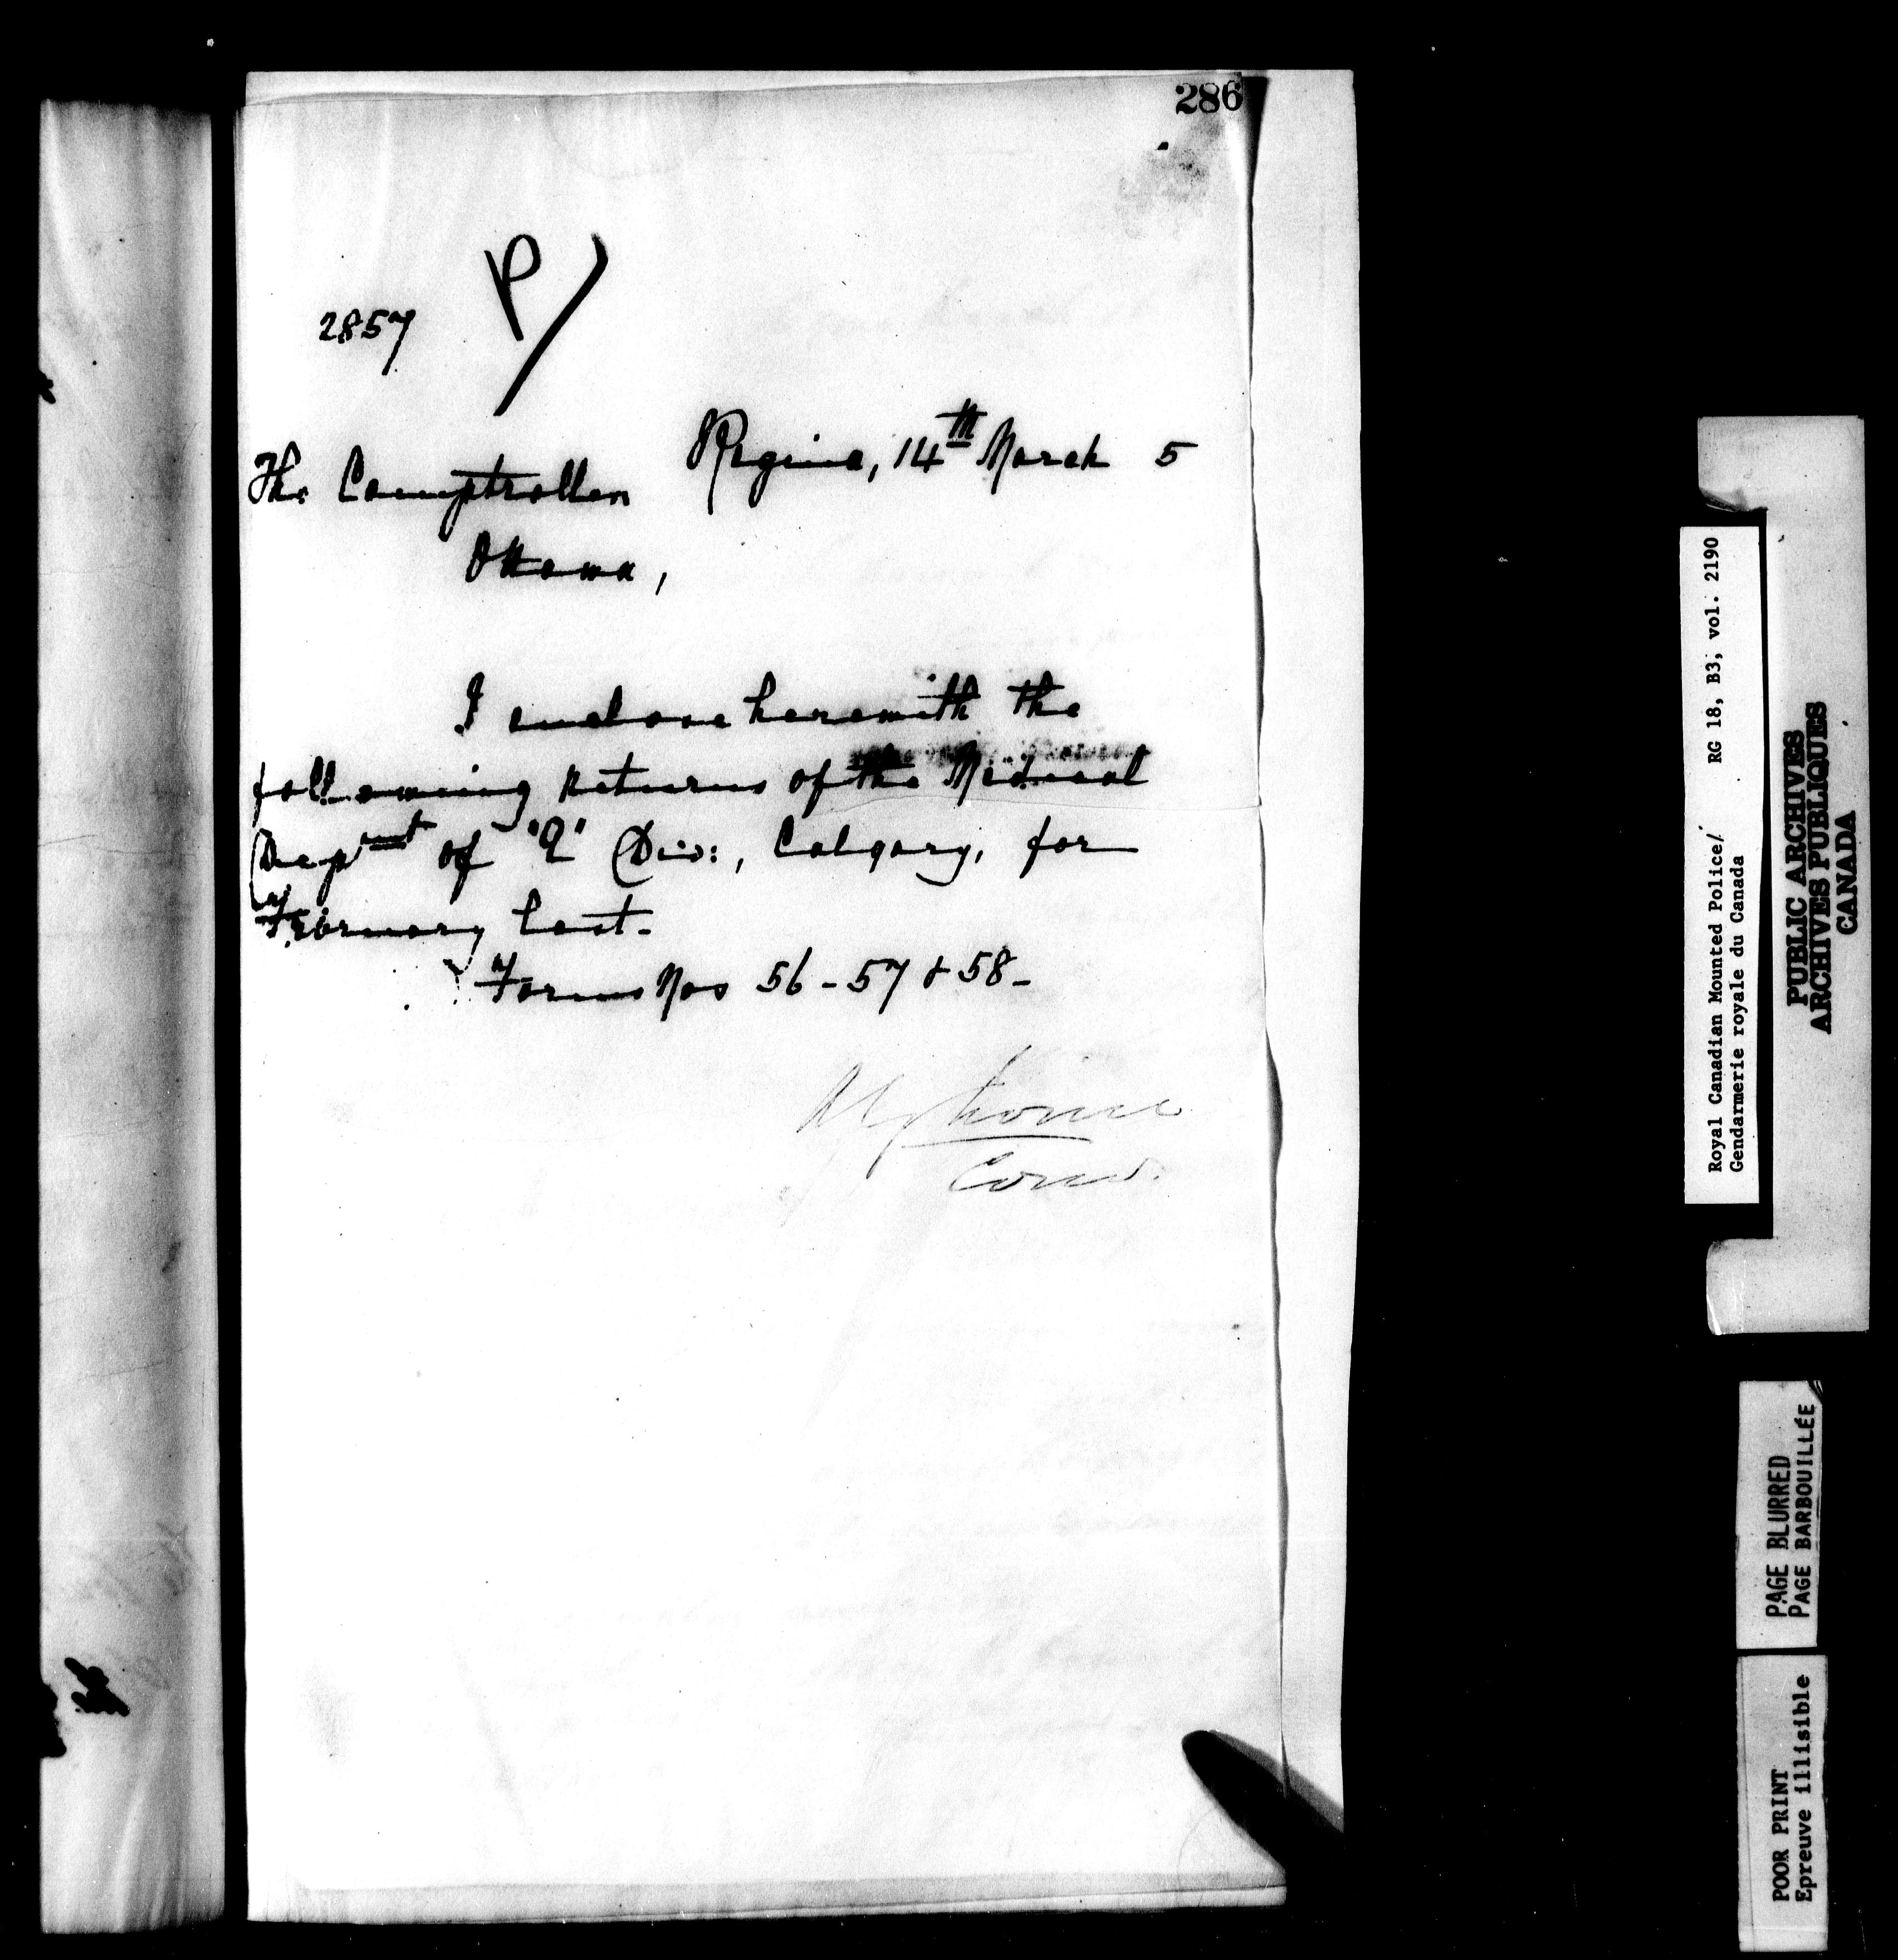 286
P/
2857
Regina, 14th March 5
The Comptroller
Ottawa,
I enclose herewith the
following returns of the Medical
Depmt of "E" Div:, Calgary, for
February last-
Forms Nos 56-57 & 58-
Comr.
Royal Canadian Mounted Police/ RG 18, B3, vol. 2190
Gendarmerie royale du Canada
PUBLIC ARCHIVES
ARCHIVES PUBLIQUES
CANADA
PAGE BLURRED
PAGE BARBOUILLÉE
POOR PRINT
Epreuve illisible